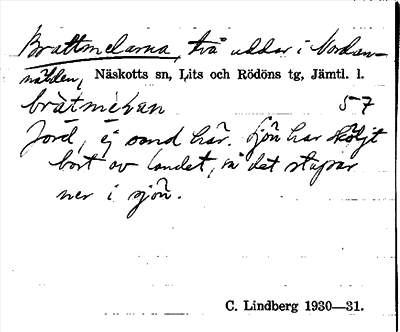 Brattmelarna, två uddar i Nordan-
nälden, Näskotts sn, Lits och Rödöns tg, Jämtl. l.
bràtmèɫan 57
Jord, ej sand här. Sjön har sköljt
bort av landet, så det stupar
ner i sjön.
C. Lindberg 1930—31.